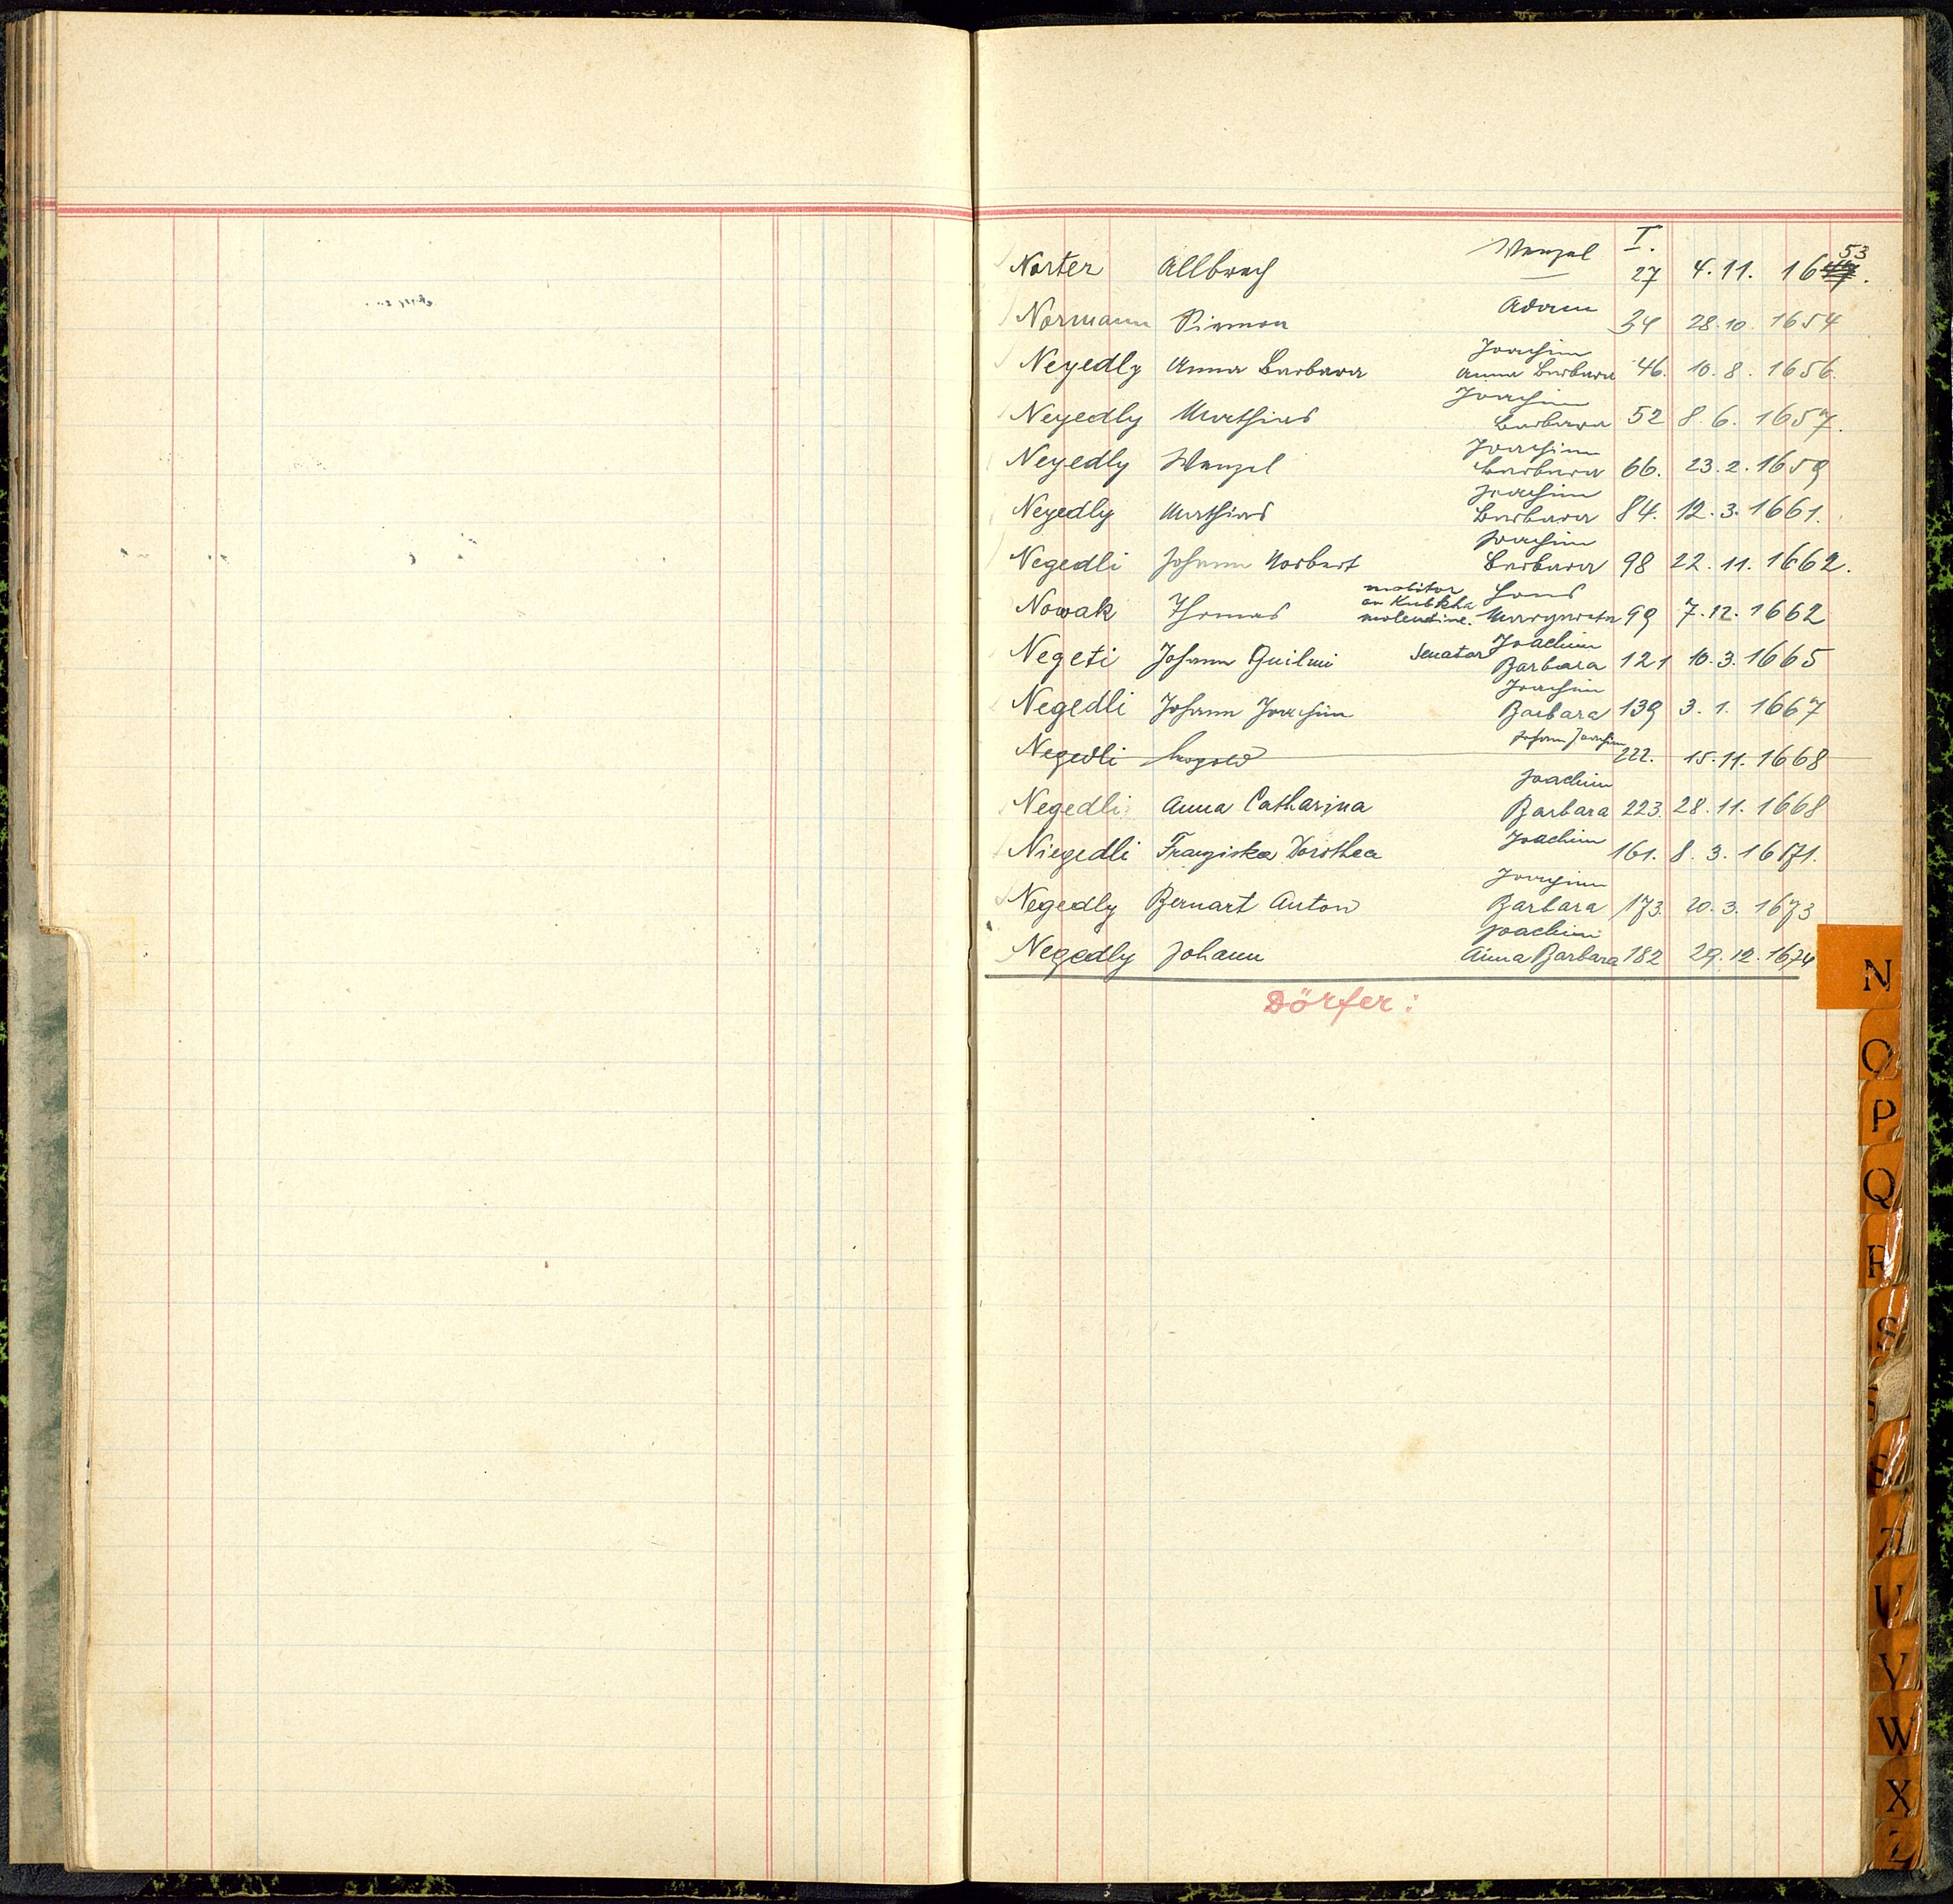 I.
Norter Wenzel 27 4.11. 1653
Normann Adam 34 28.10. 1654
Joachim
Neyedly Anna Barbara Anna Barbara 46. 10.8. 1656.
Joachim
Neyedly Mathias Barbara 52 8.6. 1657.
Joachim
Neyedly Wenzel Barbara 66. 23.2. 1659
Joachim
Neyedly Mathias Barbara 84. 12.3. 1661.
Joachim
Negedli Johann Norbert Barbara 98 22.11. 1662.
molitor Hans
Nowak Thomas Margareta 99 7.12. 1662
molendine.
Joachim
Negeti Johann Guilmi Senator Barbara 121 10.3. 1665
Joachim
Negedli Johann Joachim Barbara 139 3.1. 1667
Johann Joachim
Negedli Leopold 222. 15.11. 1668
Joachim
Negedli Anna Catharina Barbara 223. 28.11. 1668
Niegedli Franziska Dorothea Joachim 161. 8.3. 1671.
Joachim
Negedly Bernart Anton Barbara 173. 20.3. 1673
Joachim
Negedly Johann Anna Barbara 182 29.12. 1674
Dörfer:
N
O
P
Q
R
S
S
T
U
V
W
X
Z